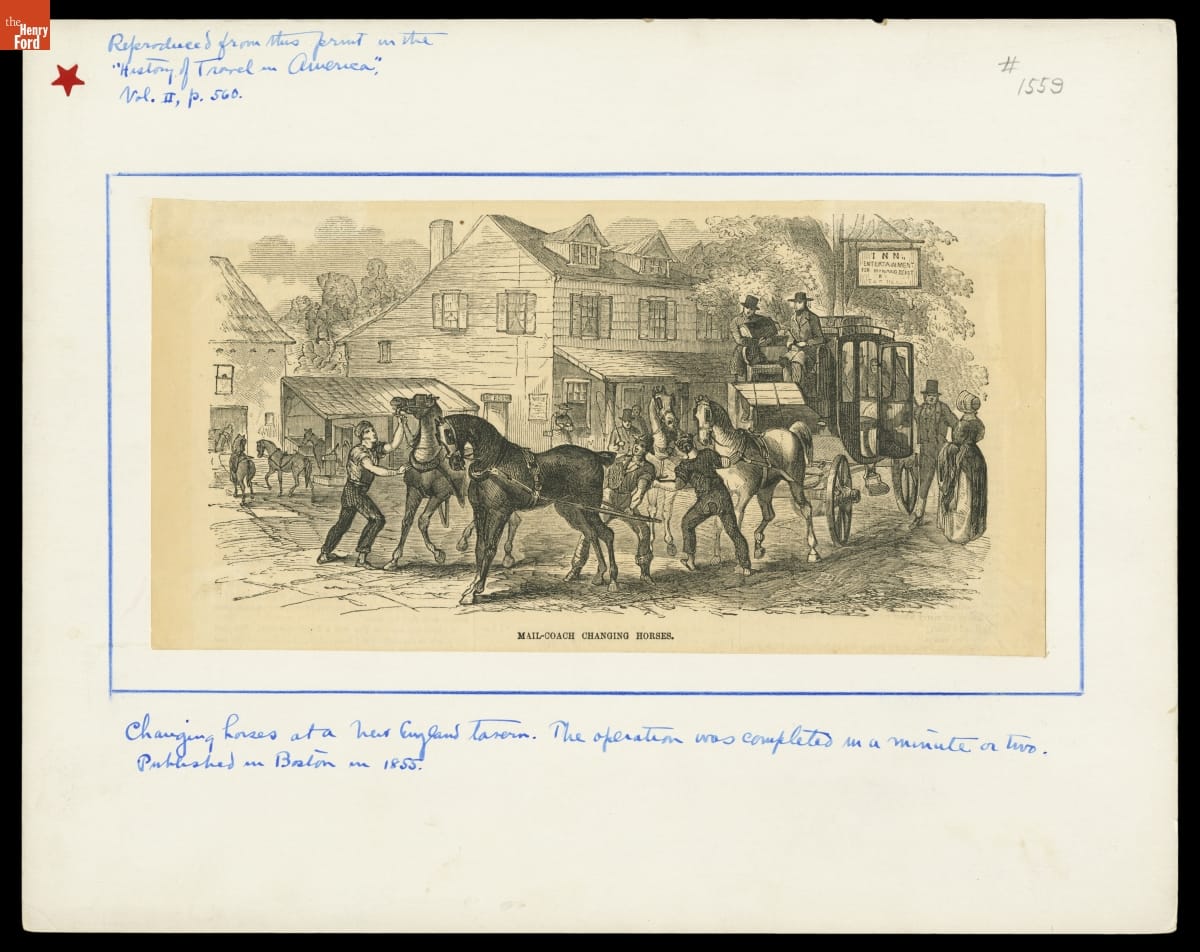 the
Henry
Ford
Reproduced from this print in the
"History of Travel in America",
Vol. II, p. 560.
#
1559
INN,
ENTERTAINMENT
FOR MAN AND BEAST
MAIL-COACH CHANGING HORSES.
Changing horses at a New England tavern. The operation was completed in a minute or two.
Published in Boston in 1855.